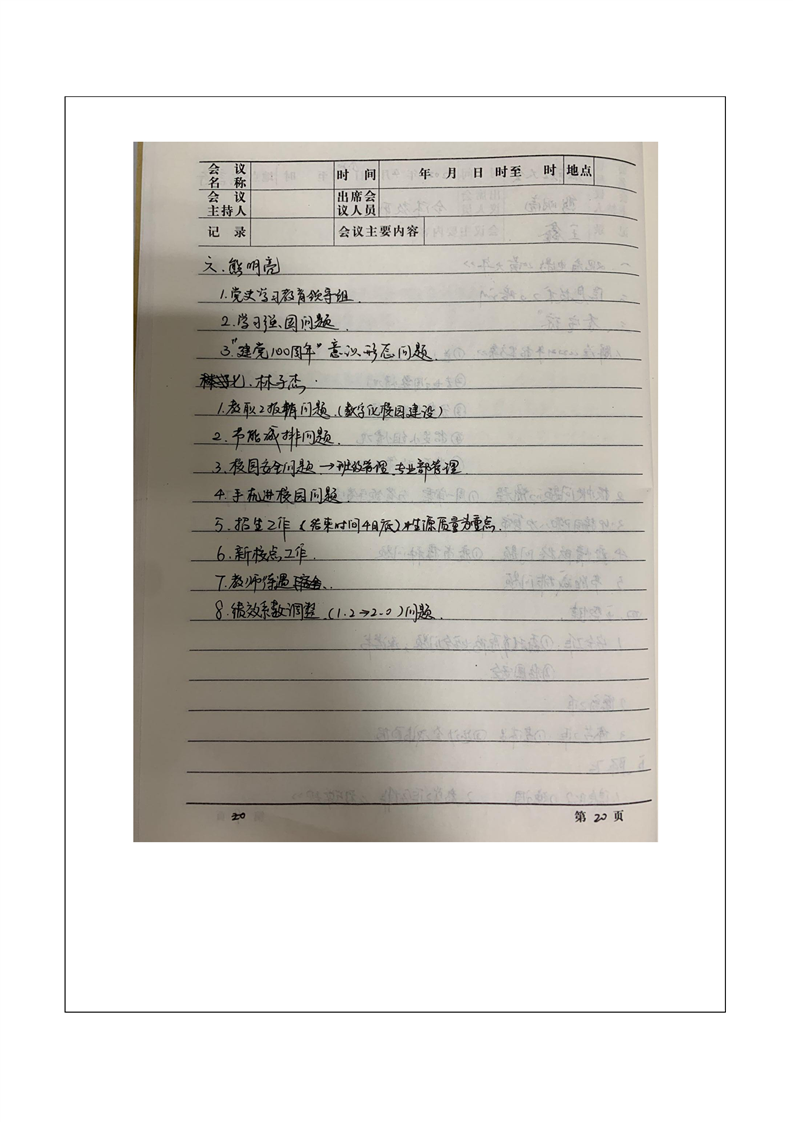 会议名称 时间 年 月 日 时至 时 地点
会议主持人 出席会议人员
记录 会议主要内容
六.熊明亮
1.党史学习教育领导组.
2.学习强国问题.
3."建党100周年"意识形态问题.
七.林子杰.
1.教职工报销问题.(数字化校园建设)
2.节能减排问题.
3.校园安全问题→班级管理 专业部管理.
4.手机进校园问题.
5.招生工作(结束时间4月底)生源质量为重点.
6.新校点工作.
7.教师待遇
8.绩效系数调整.(1.2→2.0)问题.
20 第20页